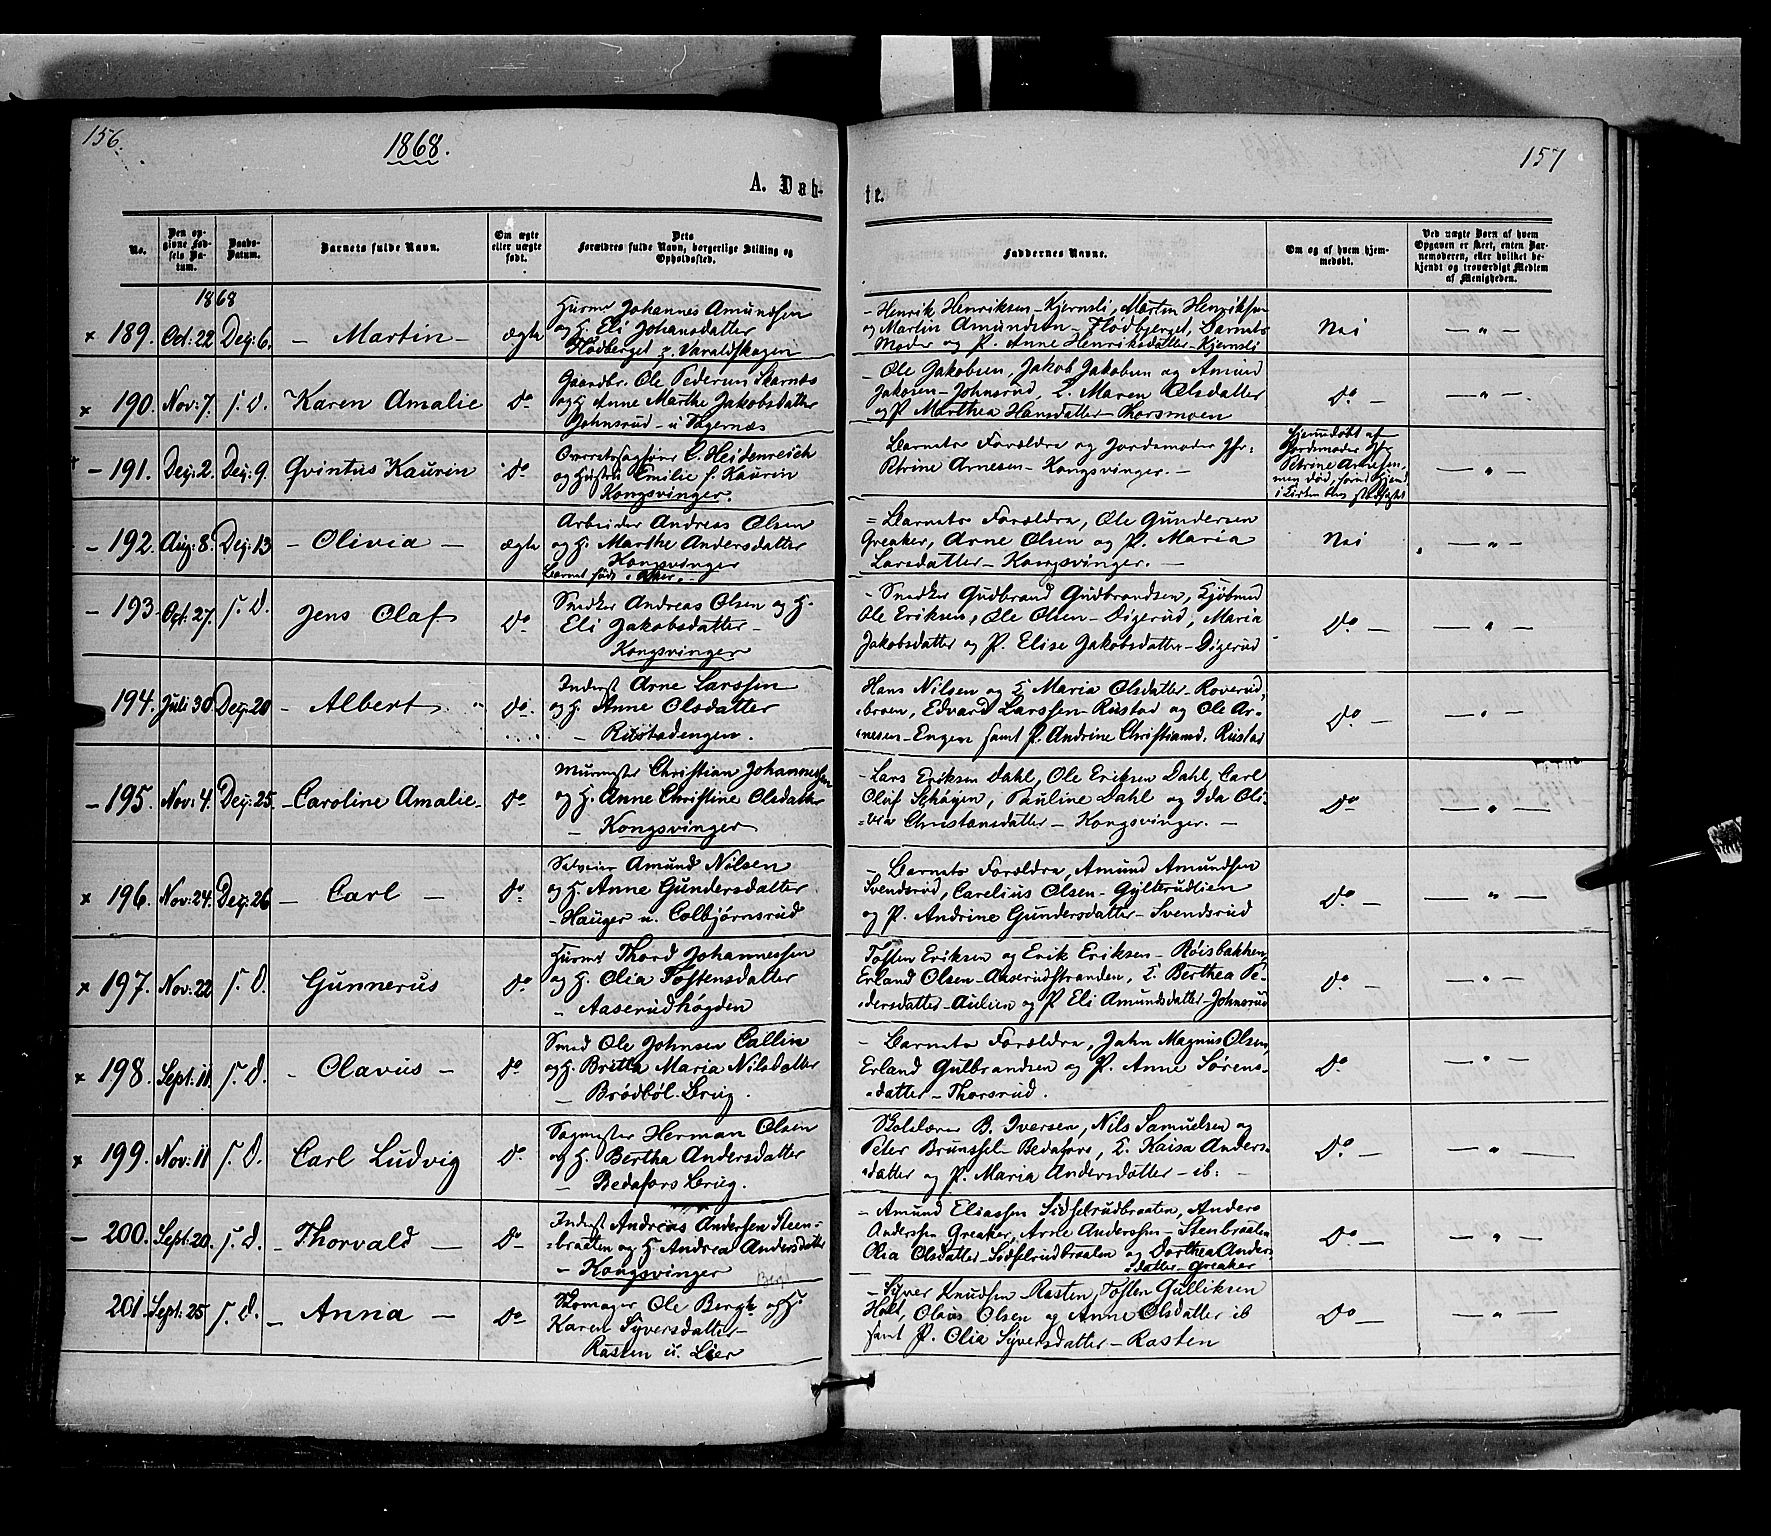 156.
1868.
157
A. Døb-
te.
No.
Den op-
givne Fød-
sels Da-
tum.
Daabs-
Datum.
Barnets fulde Navn.
Om ægte
eller uægte
født.
Dets
Forældres fulde Navn, borgerlige Stilling og
Opholdssted.
Faddernes Navne.
Om og af hvem hjem-
medøbt.
Ved uægte Børn af hvem
Opgaven er skeet, enten Bar-
nemoderen, eller hvilket be-
kjendt og troværdigt Medlem
af Menigheden.
1868
x 189. Oct: 22 Dez: 6. – Martin – ægte
Huusm Johannes Amundsen
og H. Eli Johansdatter
Flødberget p. Varaldskogen
– Henrik Henriksen – Kjernsli, Martin Henriksen
og Martin Amundsen – Flødbjerget, Barnets
Moder og P. Anne Henriksdatter – Kjernsli
Nei — " —
x 190. Nov: 7. s. D. Karen Amalie Do
Gaardbr. Ole Pedersen Skarnæs
og H. Anne Marthe Jakobsdatter
Johnsrud – u Tagernæs
– Ole Jakobsen, Jakob Jakobsen og Amund
Jakobsen – Johnsrud, K. Maren Olsdatter
og P. Marthea Hansdatter – Thorsmoen
Do — " —
– 191. Dez: 2. Dez: 9. Qvintus Kaurin Do
Overretssagfører C. Heidenreich
og Hustru Emilie f. Kaurin
Kongsvinger.
Barnets Forældre og Jordemoder Jfr:
Petrine Arnesen – Kongsvinger. –
Hjemmedøbt af
Jordemoder Jfr
Petrine Arnesen,
— " —
– 192. Aug: 8. Dez: 13 – Olivia – ægte
Arbeider Andreas Olsen
og H. Marthe Andersdatter
Kongsvinger
Barnet født i Aker. –
= Barnets Forældre, Ole Gundersen
Greaker, Arne Olsen og P. Maria
Larsdatter – Kongsvinger. –
Nei — " —
– 193. Oct: 27. s. D. Jens Olaf Do
Snedker Andreas Olsen og H.
Eli Jakobsdatter –
Kongsvinger
– Snedker Gudbrand Gudbrandsen, Kjøbmd
Ole Eriksen, Ole Olsen – Digerud, Maria
Jakobsdatter og P. Elise Jakobsdatter – Digerud
Do — " —
194. Juli 30 Dez: 20 – Albert. Do
Inderst Arne Larssen
og H. Anne Olsdatter
– Rustadengen.
Hans Nilsen og K Maria Olsdatter – Roverud,
broen, Edvard Larssen – Rustad og Ole Ar-
nesen – Engen samt P. Andrine Christiansd. Rustad
Do — " —
– 195. Nov: 4. Dez: 25. – Caroline Amalie – Do
Murmester Christian Johannessen
og H. Anne Christine Olsdatter
– Kongsvinger
– Lars Eriksen Dahl, Ole Eriksen Dahl, Carl
Oluf Schøyen, Pauline Dahl og Ida Oli-
=via Christiansdatter – Kongsvinger. –
Do — " —
x 196. Nov: 24. Dez: 26 – Carl – Do
Selveier Amund Nilsen
og H. Anne Gundersdatter
– Hauger u. Colbjørnsrud
– Barnets Forældre, Amund Amundsen
Svendsrud, Carelius Olsen – Gylterudlien
og P. Andrine Gundersdatter – Svendsrud
Do — " —
x 197. Nov: 22 s. D. Gunnerus Do
Huusm Thord Johannessen
og H. Olia Tostensdatter
– Aaserudhøgden
Tosten Eriksen og Erik Eriksen – Røisbakken,
Erland Olsen – Aaserudstranden, K. Berthea Pe-
=dersdatter – Aulien og P. Eli Amundsdatter – Johnsrud
Do — " —
x 198. Sept: 11 s. D. – Olavus – Do
Smed Ole Johnsen Callin
og H. Britta Maria Nilsdatter
– Brødbøl Brug.
– Barnets Forældre, John Magnus Olsen,
Erland Gulbrandsen og P. Anne Sørens-
=datter – Thorsrud.
Do — " —
x 199. Nov: 11 s. D. Carl Ludvig Do
Sagmester Herman Olsen
og H. Bertha Andersdatter
– Bedafors Brug.
Skolelærer B. Iversen, Nils Samuelsen og
Peter Brunssel – Bedafors, K. Kaisa Anders-
=datter og P. Maria Andersdatter – ib: –
Do — " —
– 200. Sept: 20. s. D. – Thorvald – Do
Inderst Andreas Andersen Steen-
=braaten og H. Andrea Andersdatter
– Kongsvinger
– Amund Eliassen Sidselrudbraaten, Anders
Andersen Greaker, Arne Anderssen – Stenbraaten
Olia Olsdatter – Sidselrudbraaten og Dorthea Anders
=datter – Greaker
Do — " —
201. Sept: 25 s. D. – Anna – Do
Bergh
Skomager Ole Bergh og H.
Karen Syversdatter –
Rasten u. Lier
– Syver Knudsen – Rasten, Tosten Gulliksen
Holt, Olaus Olsen og Anne Olsdatter ib
samt P. Olia Syversdatter – Rasten
Do — " —